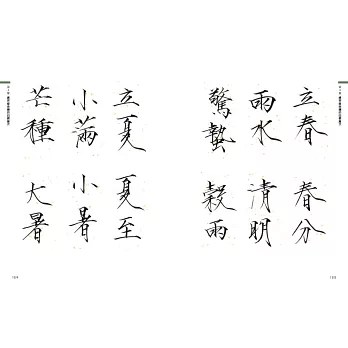 立春
雨水
驚蟄
春分
清明
穀雨
立夏
小滿
芒種
夏至
小暑
大暑